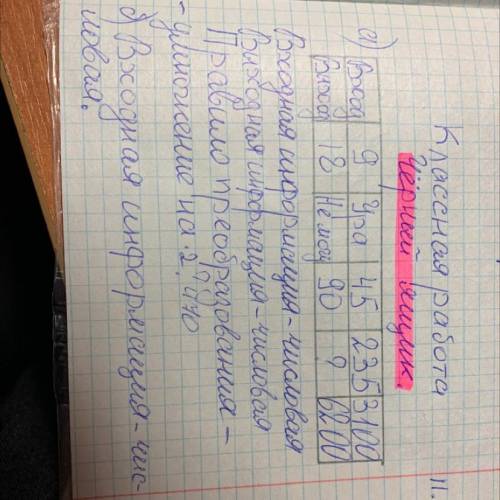 Классная работа 11.
Чёрный ящик.
а)
Вход 9 Ура 45 235 3100
Выход 18 Не могу 90 ? 6200
Входная информация - числовая
Выходная информация - числовая
Правило преобразования -
- умножение на 2. 470
б) Входная информация - чис-
ловая.